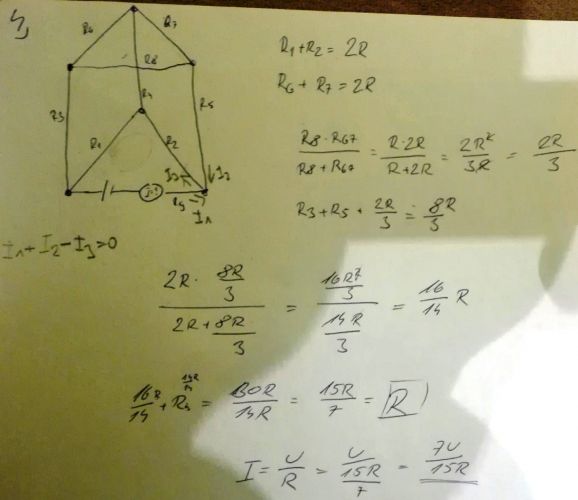 4,
R6
R7
R8
R3
R4
R5
R1
R2
I3
I2
R9
I1
I1 + I2 - I3 = 0
R1 + R2 = 2R
R6 + R7 = 2R
R8 · R67 / R8 + R67 = R · 2R / R + 2R = 2R² / 3R = 2R / 3
R3 + R5 + 2R / 3 = 8R / 3
2R · 8R / 3 / 2R + 8R / 3 = 16R² / 3 / 14R / 3 = 16 / 14 R
16R / 14 + R9 14R / 14 = 30R / 14R = 15R / 7 = R
I = U / R = U / 15R / 7 = 7U / 15R